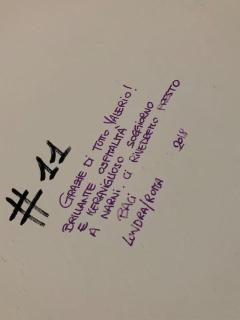 #11
GRAZIE DI TUTTO VALERIO!
BRILLANTE OSPITALITÀ
E MERAVIGLIOSO SOGGIORNO
A NARNI. CI RIVEDREMO PRESTO
BACI
LONDRA/ROMA
2018